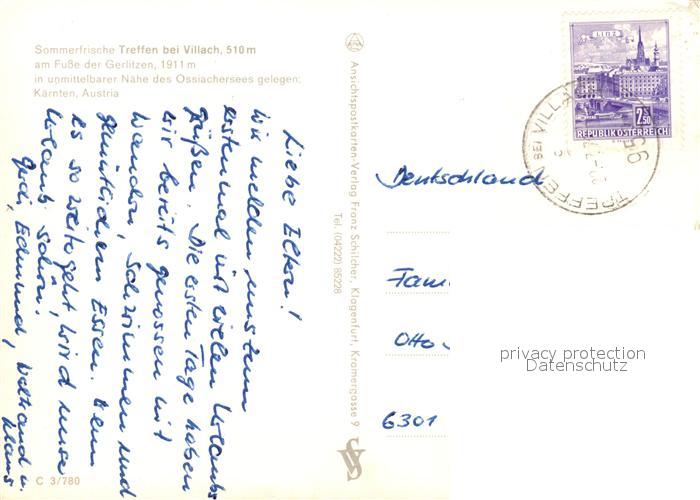 Sommerfrische Treffen bei Villach, 510 m
am Fuße der Gerlitzen, 1911 m
in unmittelbarer Nähe des Ossiachersees gelegen.
Kärnten, Austria
Liebe Eltern!
Wir melden uns zum
erstenmal mit vielen Urlaubs
grüßen. Die ersten Tage haben
wir bereits genossen mit
wandern, schwimmen und
gemütlichem Essen. Wenn
es so weitergeht, wird unser
Urlaub schön.
Edmund, Waltraud u.
Klaus
C 3/780
Ansichtspostkarten-Verlag Franz Schilcher, Klagenfurt, Kramergasse 9
Tel. (04222) 85228
LINZ
2.50
REPUBLIK ÖSTERREICH
TREFFEN BEI VILLACH
Deutschland
Fam
Otto
6301
privacy protection
Datenschutz